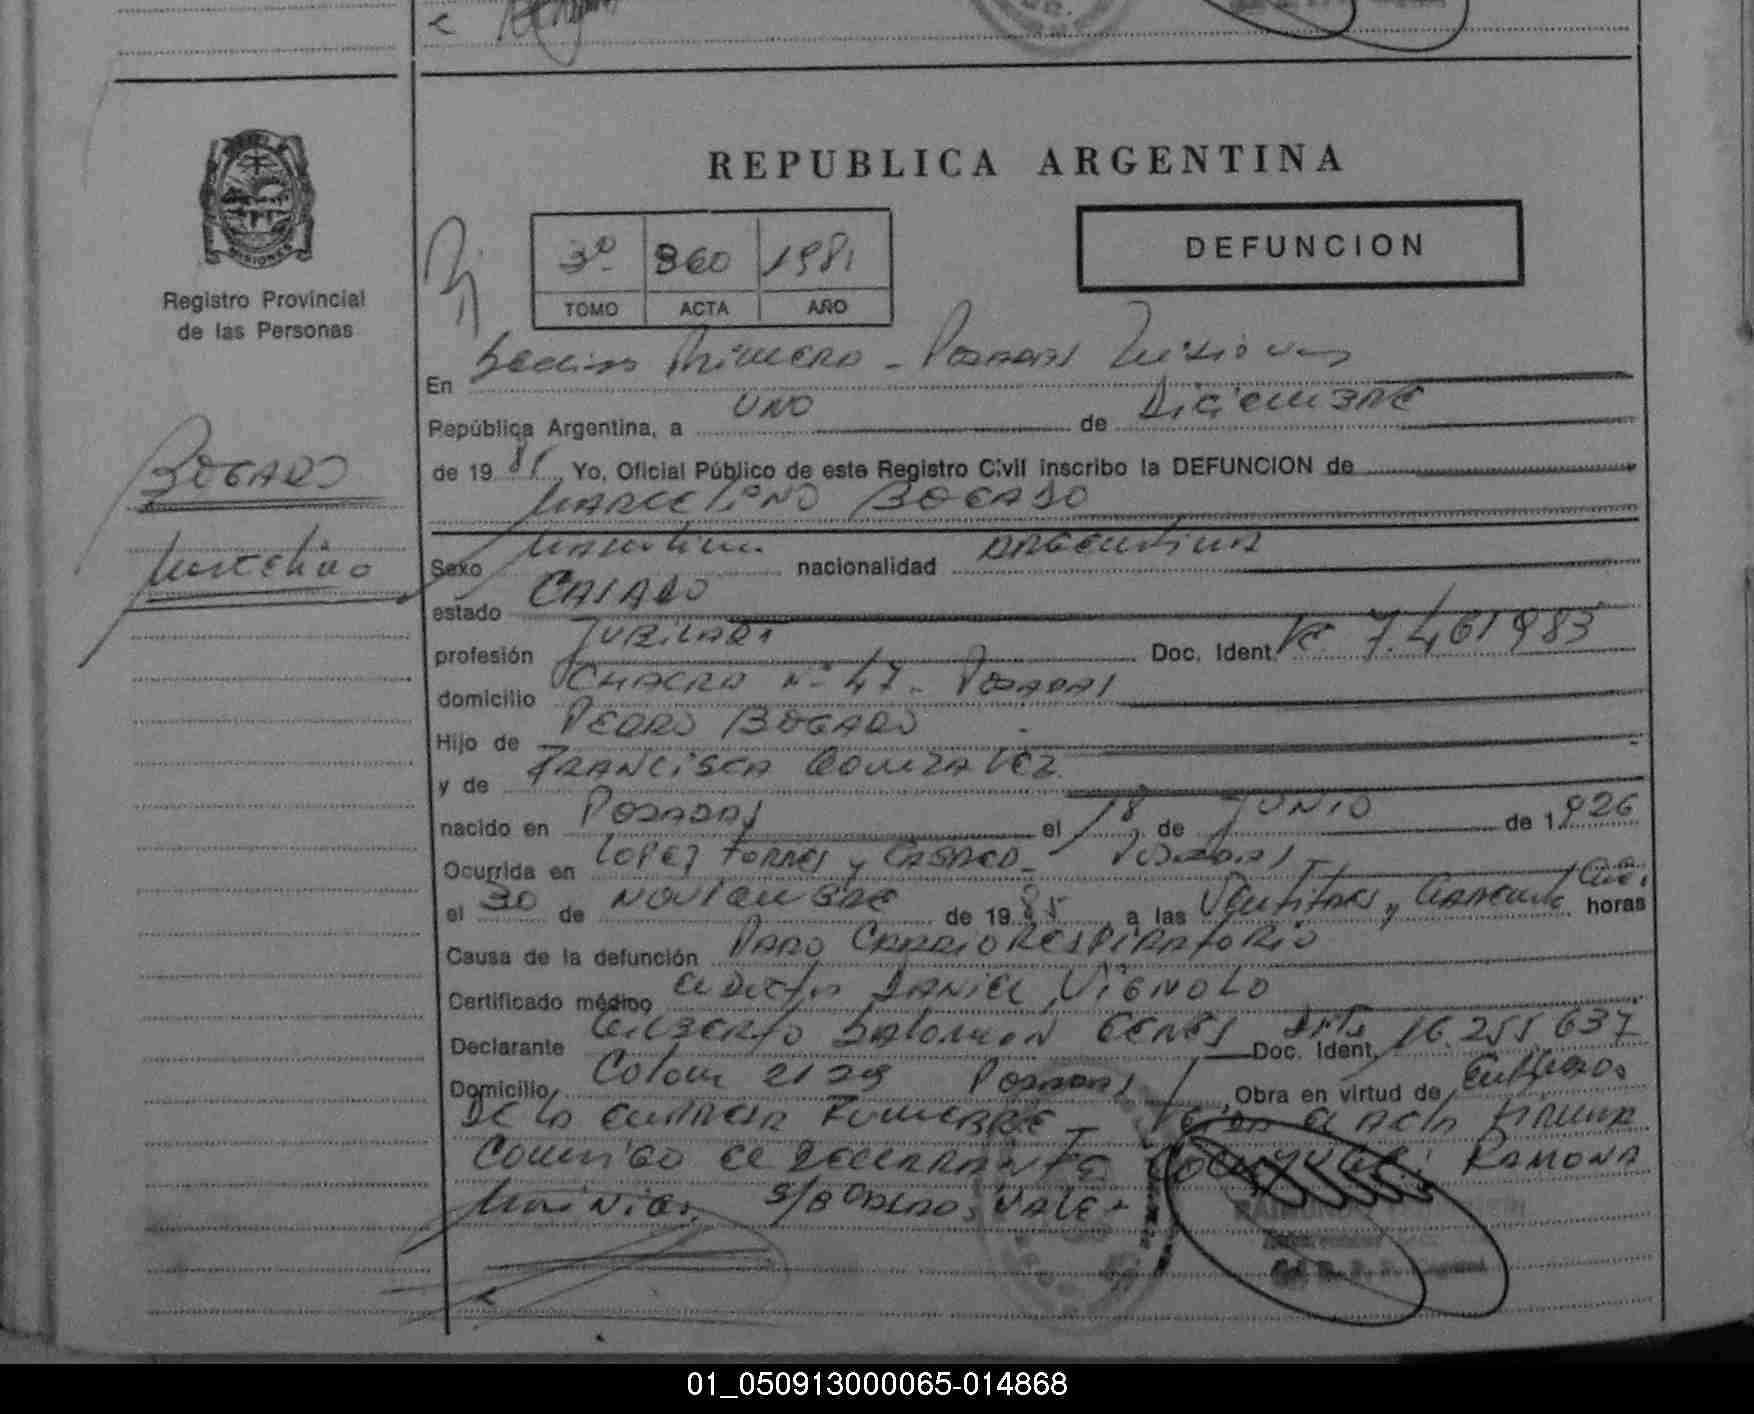 REPUBLICA ARGENTINA
MISIONES
Registro Provincial
de las Personas
3º 860 1981
TOMO ACTA AÑO
DEFUNCION
En Seccion Primera - Posadas Misiones
República Argentina, a UNO de Diciembre
de 1981 Yo, Oficial Público de este Registro Civil inscribo la DEFUNCION de
MARCELINO BOGADO
BOGADO
Marcelino
Sexo Masculino nacionalidad ARGENTINA
estado CASADO
profesión JUBILADO Doc. Ident. 7.461983
domicilio CHACRA Nº 47 - POSADAS
Hijo de PEDRO BOGADO
y de FRANCISCA GONZALEZ
nacido en POSADAS el 18 de JUNIO de 1926
Ocurrida en LOPEZ TORRES y - POSADAS
el 30 de NOVIEMBRE de 19 a las Ventitres y horas
Causa de la defunción PARO CARDIORESPIRATORIO
Certificado médico DANIEL VIGNOLO
Declarante GILBERTO SALOMON Doc. Ident. 16.255.637
Domicilio Colon 2129 POSADAS Obra en virtud de Empleado
DE LA EMPRESA FUNEBRE - el acta FIRMA
CONMIGO el DECLARANTE CONYUGE: RAMONA
S/B VALE
01_050913000065-014868